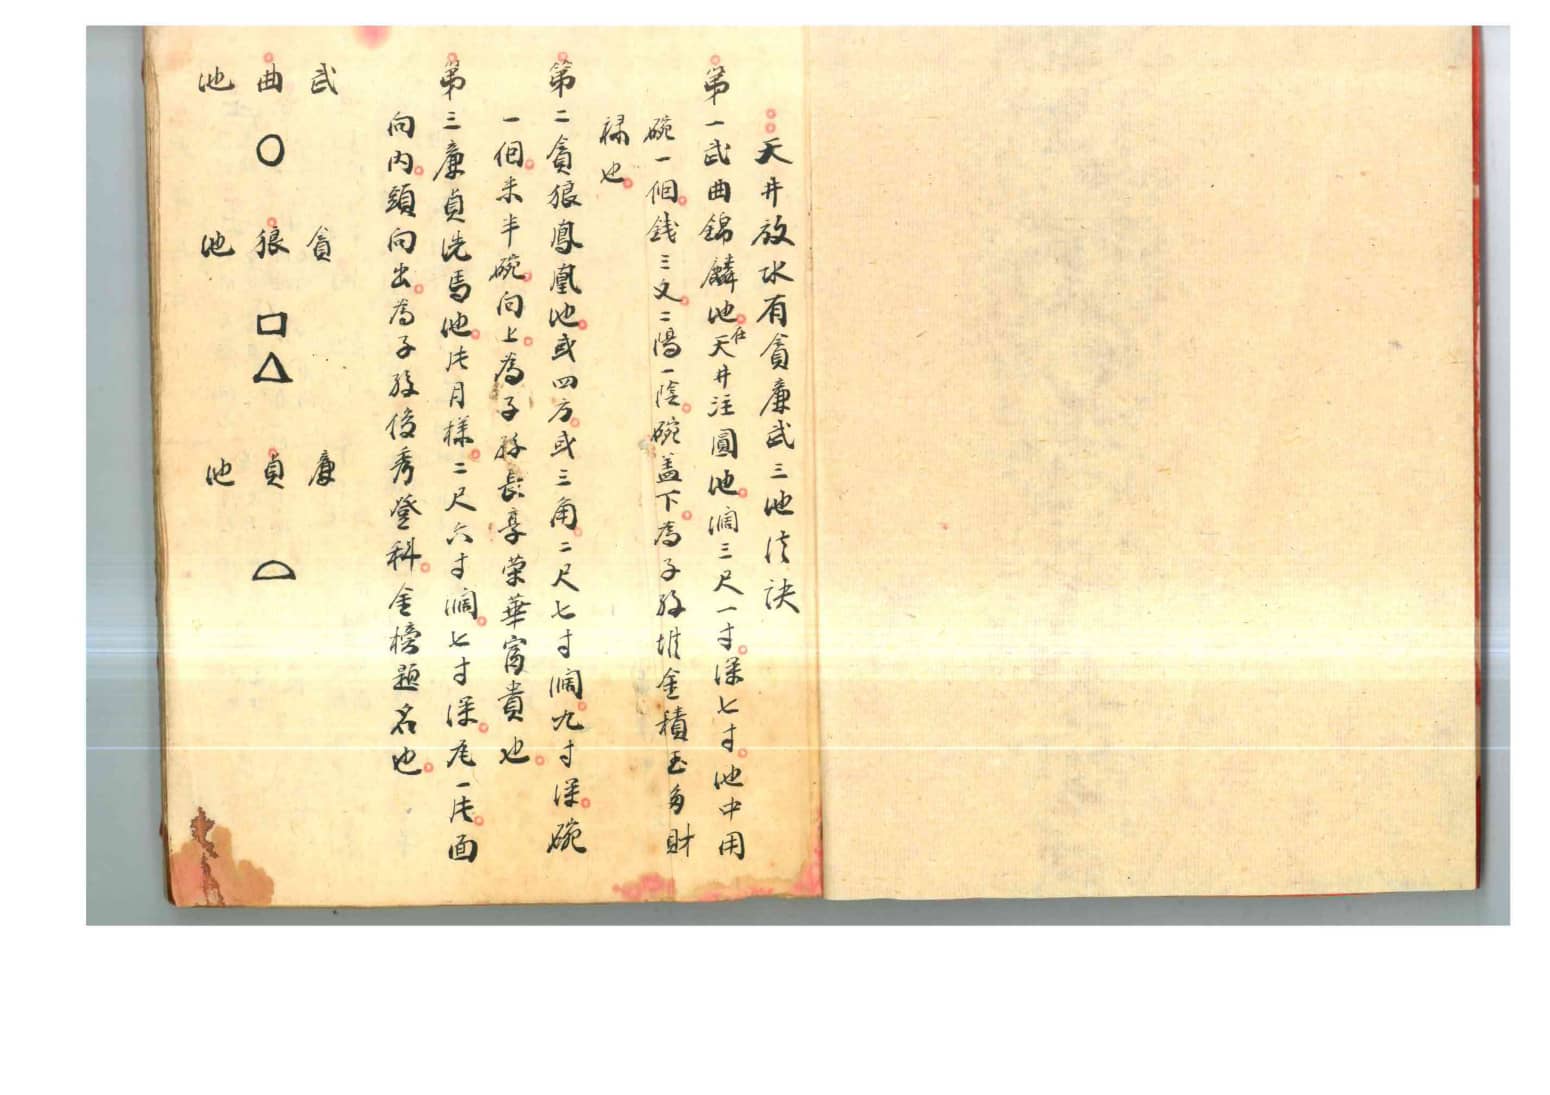 天井放水有貪廉武三池法訣
第一武曲錦麟池在天井注圓池濶三尺一寸深七寸池中用
碗一個錢三文二陽一陰碗盖下為子孫堆金積玉多財
禄也
第二貪狼鳳凰池或四方或三角二尺七寸濶九寸深碗
一個米半碗向上為子孫長享荣華富貴也
第三廉貞洗馬池 月様二尺六寸濶七寸深瓦一 面
向内頭向出為子孫俊秀登科金榜題名也
武曲池
貪狼池
廉貞池